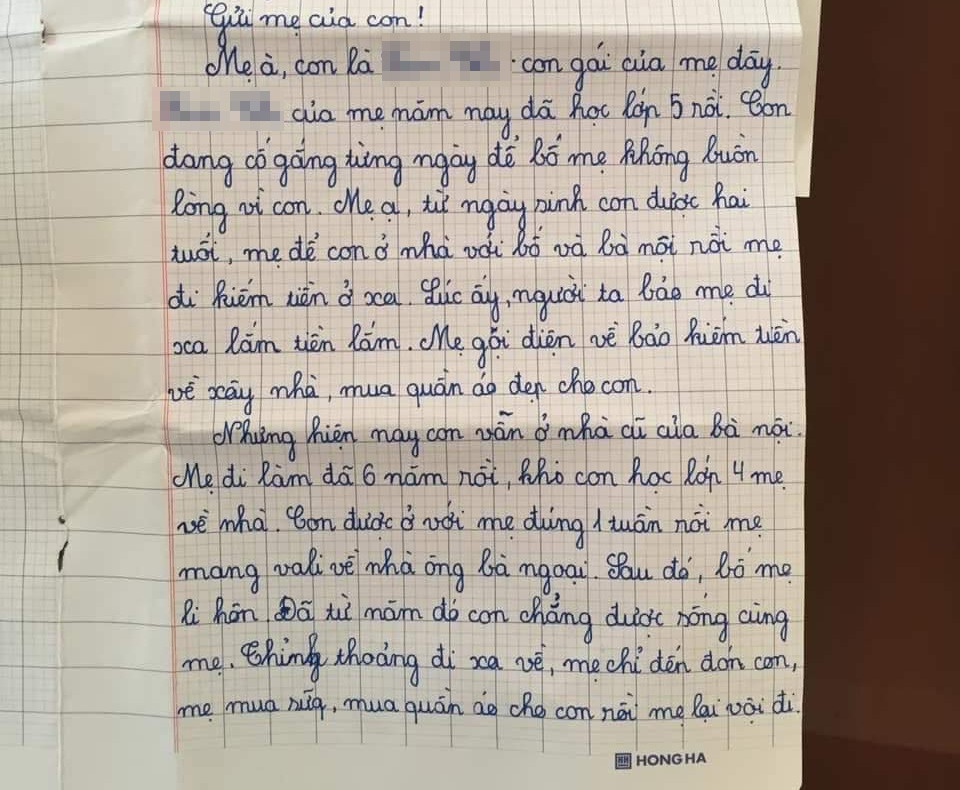 Gửi mẹ của con!
Mẹ à, con là con gái của mẹ đây.
của mẹ năm nay đã học lớp 5 rồi. Con
đang cố gắng từng ngày để bố mẹ không buồn
lòng vì con. Mẹ ạ, từ ngày sinh con được hai
tuổi, mẹ để con ở nhà với bố và bà nội rồi mẹ
đi kiếm tiền ở xa. Lúc ấy, người ta bảo mẹ đi
xa lắm tiền lắm. Mẹ gọi điện về bảo kiếm tiền
về xây nhà, mua quần áo đẹp cho con.
Nhưng hiện nay con vẫn ở nhà cũ của bà nội.
Mẹ đi làm đã 6 năm rồi, khi con học lớp 4 mẹ
về nhà. Con được ở với mẹ đúng 1 tuần rồi mẹ
mang vali về nhà ông bà ngoại. Sau đó, bố mẹ
li hôn. Đã từ năm đó con chẳng được sống cùng
mẹ. Thỉnh thoảng đi xa về, mẹ chỉ đến đón con,
mẹ mua sữa, mua quần áo cho con rồi mẹ lại vội đi.
HH HONG HA